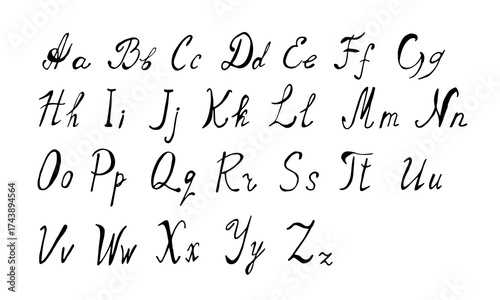 Aa Bb Cc Dd Ee Ff Gg
Hh Ii Jj Kk Ll Mm Nn
Oo Pp Qq Rr Ss Tt Uu
Vv Ww Xx Yy Zz
Adobe Stock | #1743894564